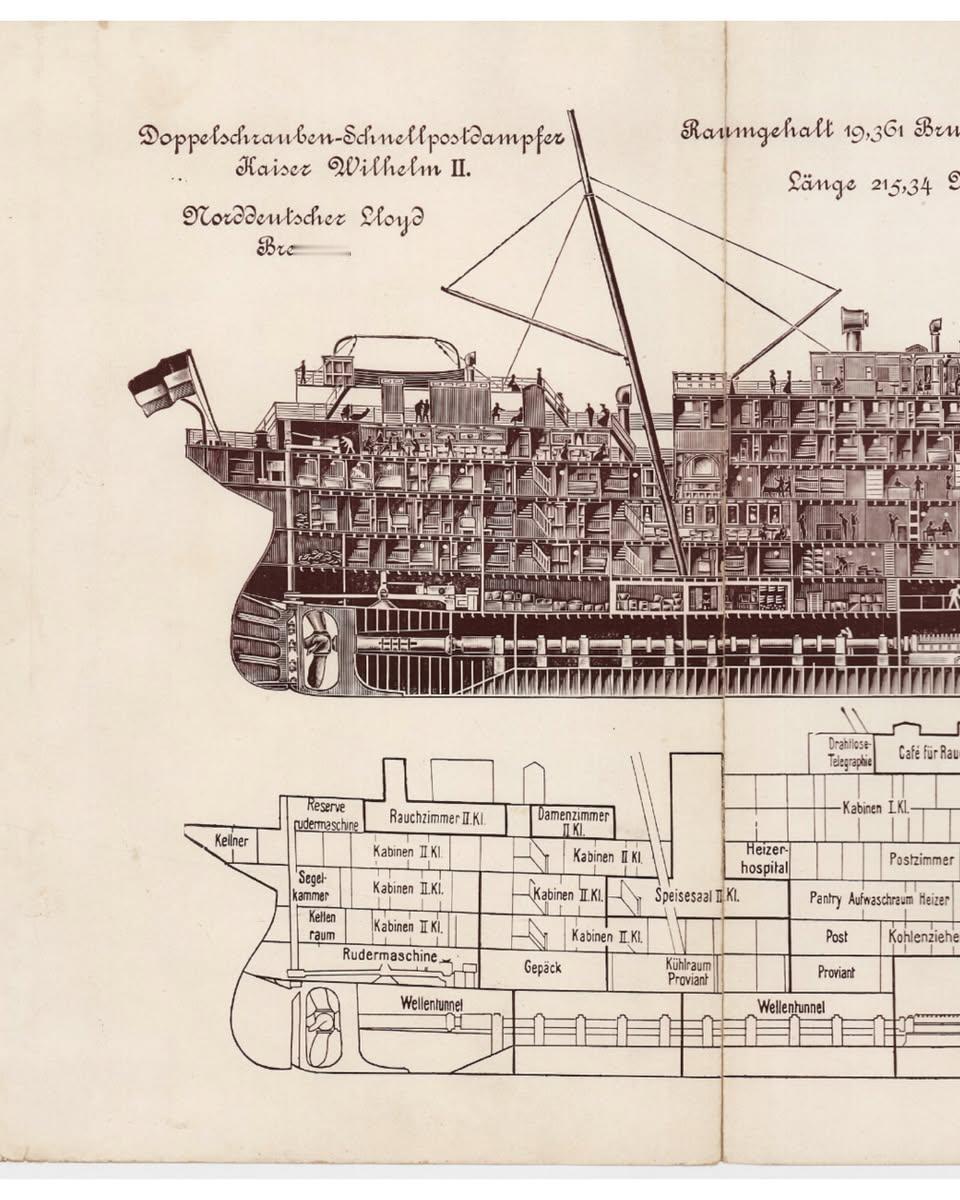 Doppelschrauben-Schnellpostdampfer
Kaiser Wilhelm II.
Norddeutscher Lloyd
Raumgehalt 19,361
Länge 215,34
Drahtlose-
Telegraphie
Café für
Reserve
rudermaschine
Rauchzimmer II. Kl.
Damenzimmer
II. Kl.
Kabinen I. Kl.
Kellner
Kabinen II. Kl.
Kabinen II. Kl.
Heizer-
hospital
Postzimmer
Segel-
kammer
Kabinen II. Kl.
Kabinen II. Kl.
Speisesaal II. Kl.
Pantry Aufwaschraum Heizer
Ketten
raum
Kabinen II. Kl.
Kabinen II. Kl.
Post
Rudermaschine
Gepäck
Kühlraum
Proviant
Proviant
Wellentunnel
Wellentunnel